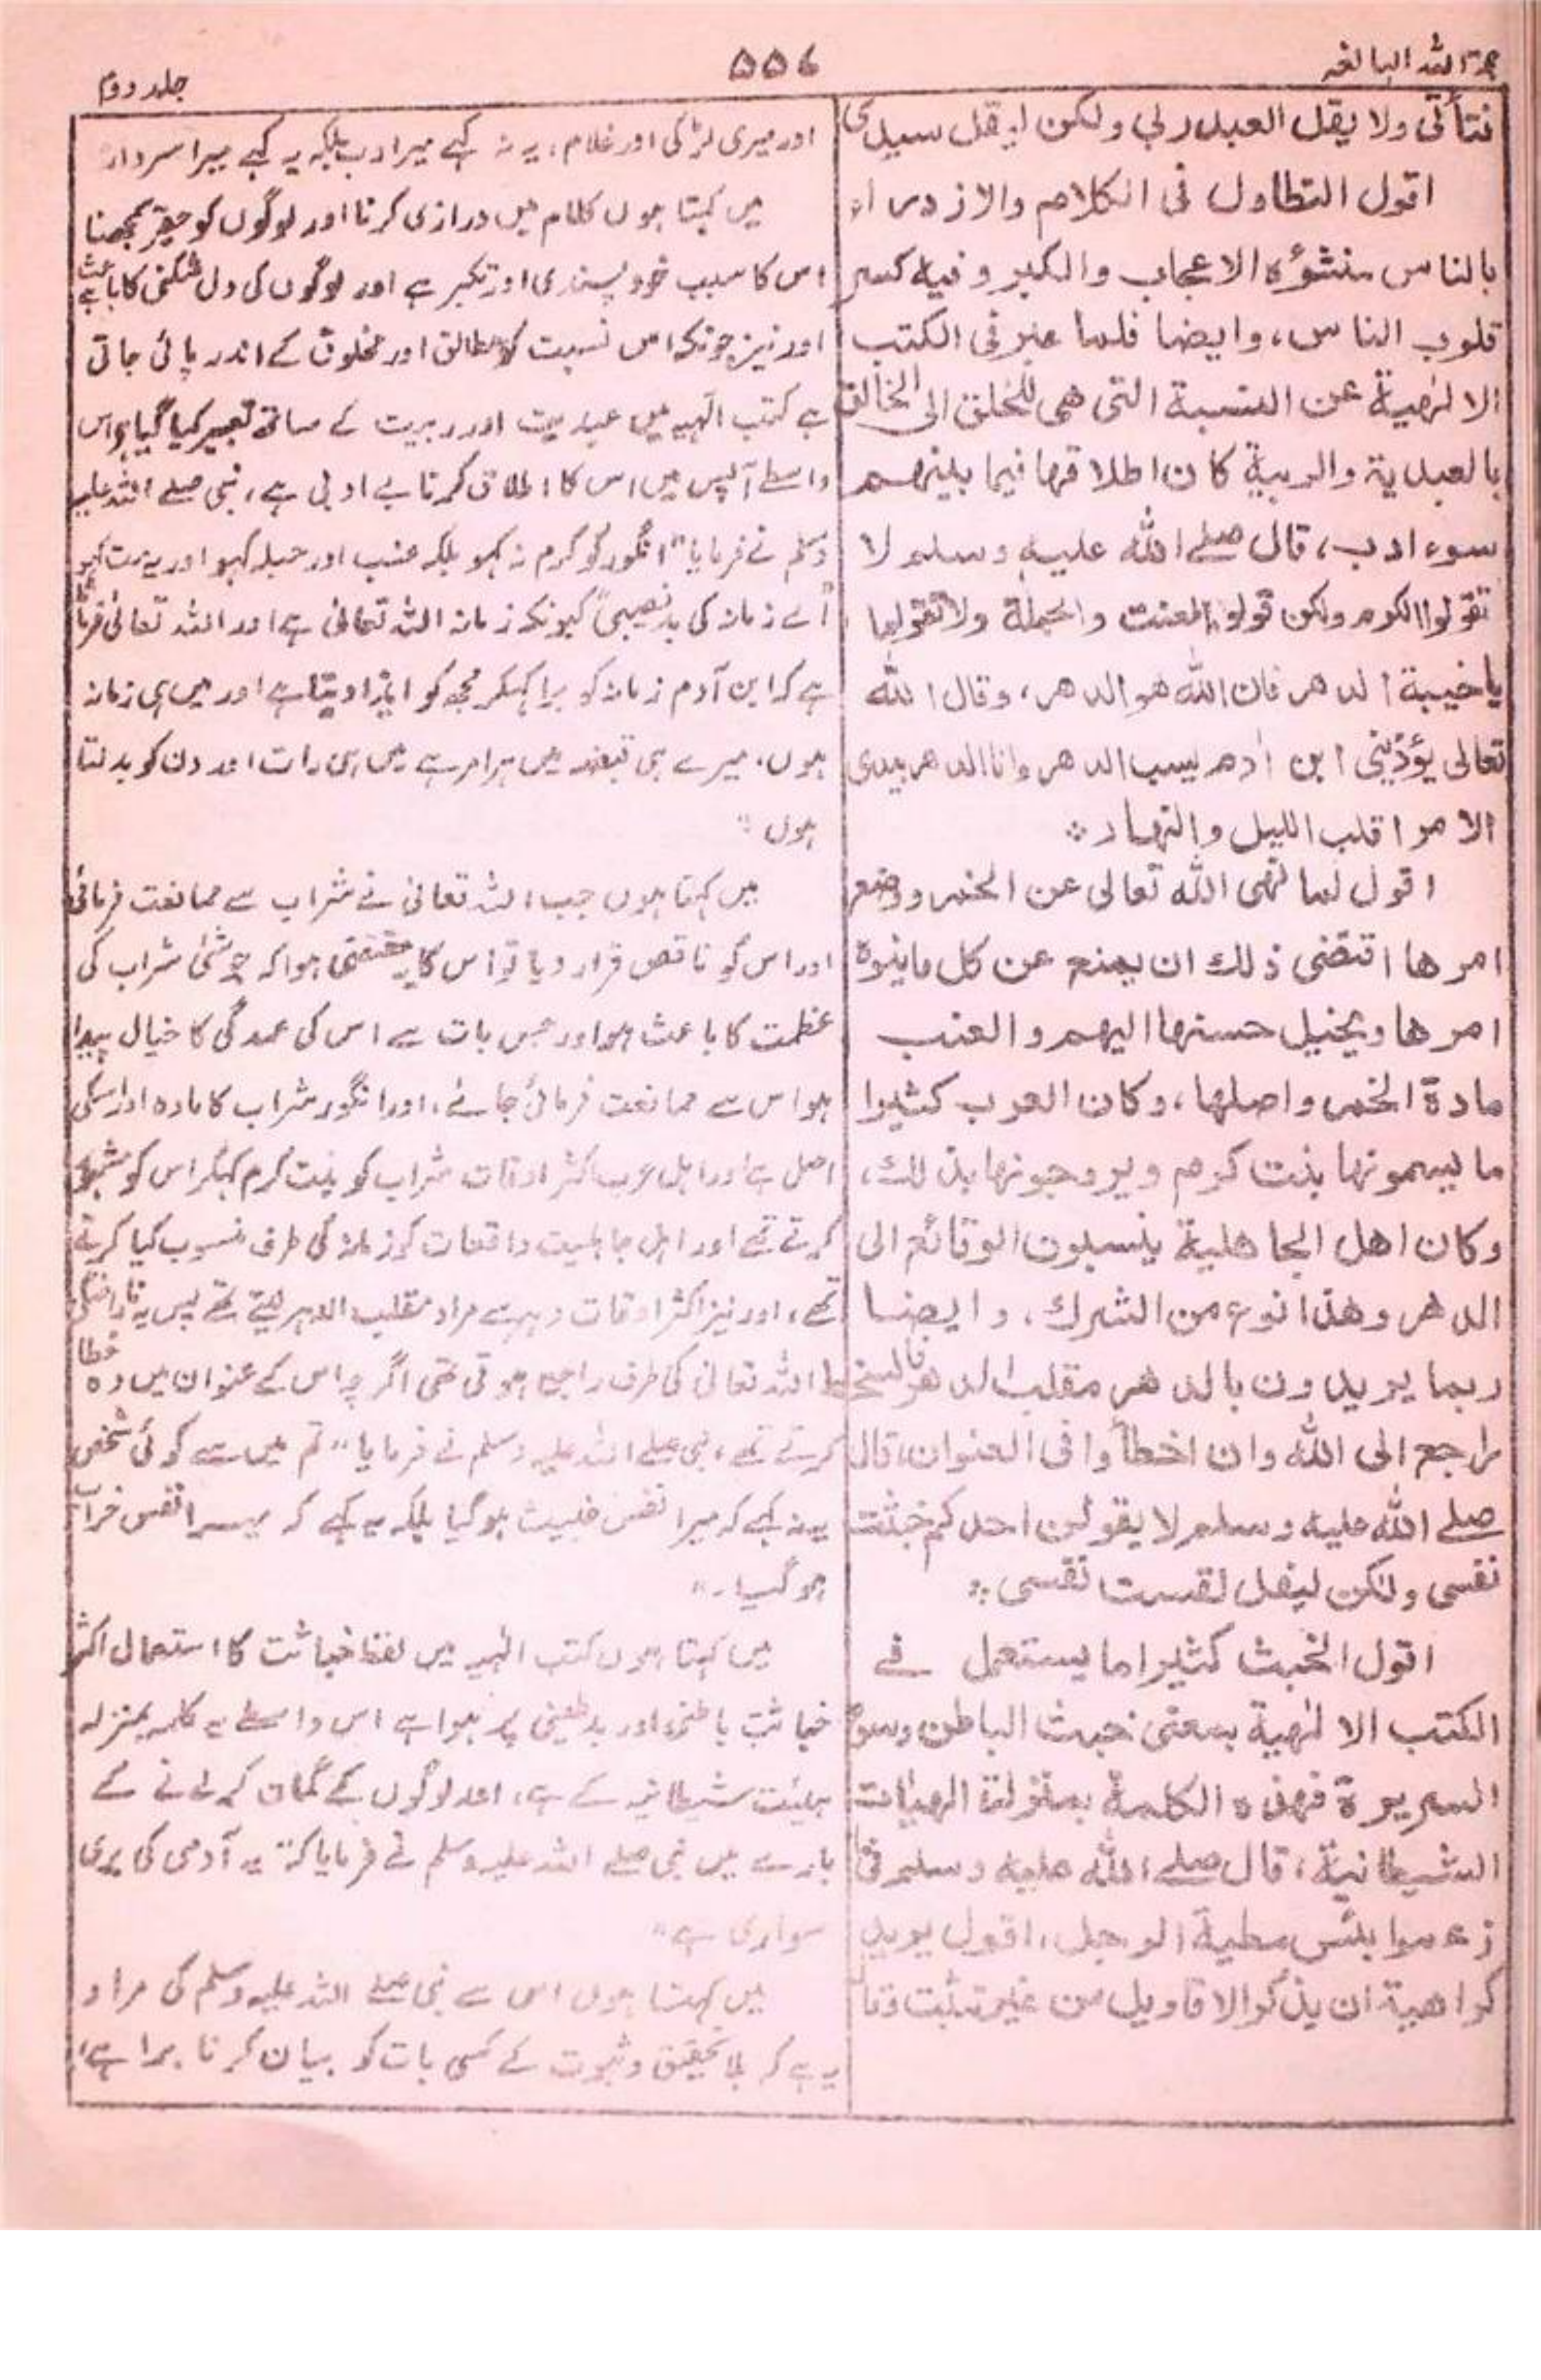 حجة اللہ البالغہ
۵۵۶
جلد دوم
فتاتی ولا یقل العبد ربی ولکن لیقل سیدی
اقول التطاول فی الکلام والازدراء
بالناس منشؤہ الاعجاب والکبر وفیہ کسر
قلوب الناس، وایضا فلما عبر فی الکتب
الالٰہیة عن النسبة التی ھی للخلق الی الخالق
بالعبدیة والربیة کان اطلاقھا فیما بینھم
سوء ادب، قال صلے اللہ علیہ وسلم لا
تقولوا الکرم ولکن قولوا العنب والحبلة ولا تقولوا
یا خیبة الدھر فان اللہ ھو الدھر، وقال اللہ
تعالی یؤذینی ابن اٰدم یسب الدھر وانا الدھر بیدی
الامر اقلب اللیل والنھار ÷
اقول لما نھی اللہ تعالی عن الخمر ووضع
امرھا اقتضی ذلك ان یمنع عن کل ما ینوہ
امرھا ویخیل حسنھا الیھم والعنب
مادة الخمر واصلھا، وکان العرب کثیرا
ما یسمونھا بنت کرم ویروجونھا بذلك،
وکان اھل الجاھلیة ینسبون الوقائع الی
الدھر وھذا نوع من الشرك، وایضا
ربما یریدون بالدھر مقلب الدھر فالسخط
راجع الی اللہ وان اخطأوا فی العنوان، قال
صلے اللہ علیہ وسلم لا یقولن احدکم خبثت
نفسی ولکن لیقل لقست نفسی ÷
اقول الخبث کثیرا ما یستعمل فے
الکتب الالٰہیة بمعنی خبث الباطن وسوء
السریرة فھذہ الکلمة بمنزلة الھیئات
الشیطانیة، قال صلے اللہ علیہ وسلم فی
زعموا بئس مطیة الرجل، اقول یرید
کراھیة ان یذکر الاقاویل من غیر تثبت
اور میری لڑکی اور غلام، یہ نہ کہے میرا رب بلکہ یہ کہے میرا سردار
میں کہتا ہوں کلام میں درازی کرنا اور لوگوں کو حقیر سمجھنا
اس کا سبب خود پسندی اور تکبر ہے اور لوگوں کی دل شکنی کا باعث ہے
اور نیز چونکہ اس نسبت کو خالق اور مخلوق کے اندر پائی جاتی
ہے کتب الٰہیہ میں عبدیت اور ربیت کے ساتھ تعبیر کیا گیا ہے اس
واسطے آپس میں اس کا اطلاق کرنا بے ادبی ہے، نبی صلے اللہ علیہ
وسلم نے فرمایا "انگور کو کرم نہ کہو بلکہ عنب اور حبلہ کہو اور یہ مت کہو
اے زمانہ کی بدنصیبی" کیونکہ زمانہ اللہ تعالیٰ ہے اور اللہ تعالیٰ فرماتا
ہے کہ ابن آدم زمانہ کو برا کہکر مجھ کو ایذا دیتا ہے اور میں ہی زمانہ
ہوں، میرے ہی قبضہ میں ہر امر ہے میں ہی رات اور دن کو بدلتا
ہوں"
میں کہتا ہوں جب اللہ تعالیٰ نے شراب سے ممانعت فرمائی
اور اس کو ناقص قرار دیا تو اس کا یہ مقتضی ہوا کہ جو شئی شراب کی
عظمت کا باعث ہو اور جس بات سے اس کی عمدگی کا خیال پیدا
ہو اس سے ممانعت فرمائی جائے، اور انگور شراب کا مادہ اور اسکی
اصل ہے اور اہل عرب اکثر اوقات شراب کو بنت کرم کہکر اس کو مشہور
کرتے تھے اور اہل جاہلیت واقعات کو زمانہ کی طرف منسوب کیا کرتے
تھے، اور نیز اکثر اوقات دہر سے مراد مقلب الدہر لیتے تھے پس یہ ناراضگی
اللہ تعالیٰ کی طرف راجع ہوتی تھی اگرچہ اس کے عنوان میں وہ خطا
کرتے تھے، نبی صلے اللہ علیہ وسلم نے فرمایا "تم میں سے کوئی شخص
یہ نہ کہے کہ میرا نفس خبیث ہو گیا بلکہ یہ کہے کہ میرا نفس خراب
ہو گیا۔"
میں کہتا ہوں کتب الٰہیہ میں لفظ خباثت کا استعمال اکثر
خباثت باطنی اور بدطینتی پر ہوا ہے اس واسطے یہ کلمہ بمنزلہ
ہیئت شیطانیہ کے ہے، اور لوگوں کے گمان کرنے کے
بارے میں نبی صلے اللہ علیہ وسلم نے فرمایا کہ "یہ آدمی کی بری
سواری ہے"
میں کہتا ہوں اس سے نبی صلے اللہ علیہ وسلم کی مراد
یہ ہے کہ بلا تحقیق وثبوت کے کسی بات کو بیان کرنا برا ہے،